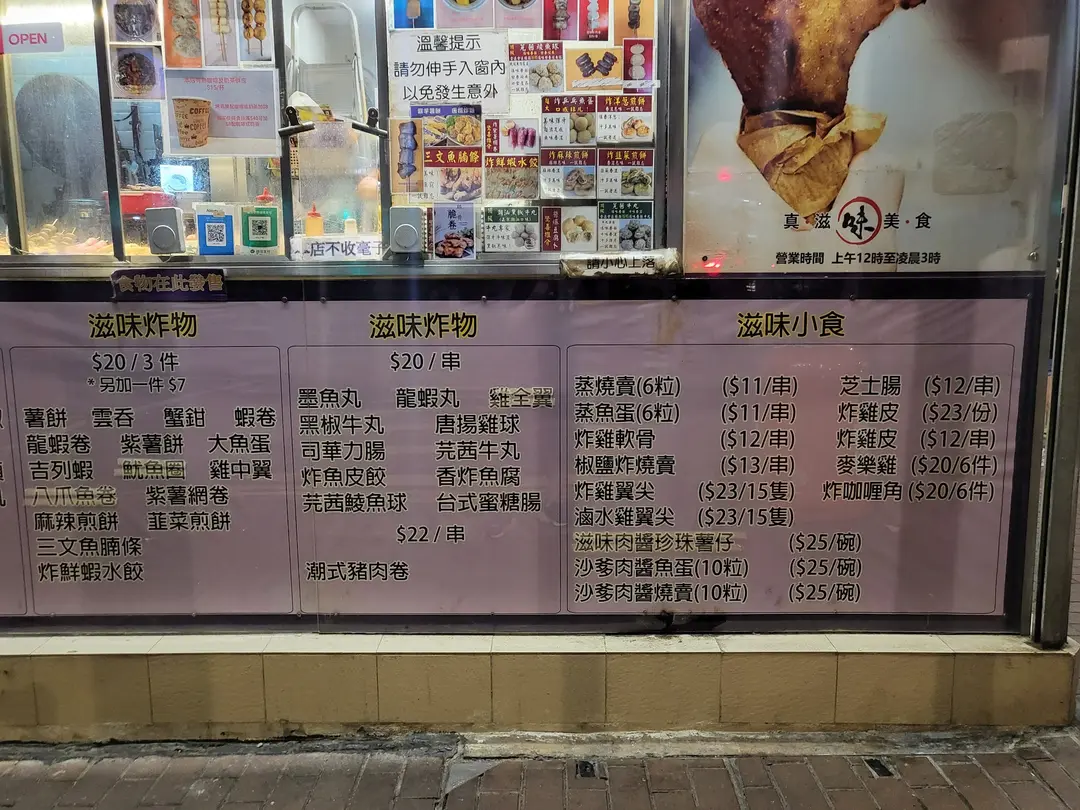 OPEN
溫馨提示
請勿伸手入窗內
以免發生意外
COFFEE
三文魚腩條
炸鮮蝦水餃
炸麻辣煎餅
炸韭菜煎餅
炸洋蔥煎餅
脆卷
店不收毫子
請小心上落
真·滋味美·食
營業時間 上午12時至凌晨3時
食物在此發售
滋味炸物
$20 / 3 件
*另加一件 $7
薯餅 雲吞 蟹鉗 蝦卷
龍蝦卷 紫薯餅 大魚蛋
吉列蝦 魷魚圈 雞中翼
八爪魚卷 紫薯網卷
麻辣煎餅 韮菜煎餅
三文魚腩條
炸鮮蝦水餃
滋味炸物
$20 / 串
墨魚丸 龍蝦丸 雞全翼
黑椒牛丸 唐揚雞球
司華力腸 芫茜牛丸
炸魚皮餃 香炸魚腐
芫茜鯪魚球 台式蜜糖腸
$22 / 串
潮式豬肉卷
滋味小食
蒸燒賣(6粒) ($11/串) 芝士腸 ($12/串)
蒸魚蛋(6粒) ($11/串) 炸雞皮 ($23/份)
炸雞軟骨 ($12/串) 炸雞皮 ($12/串)
椒鹽炸燒賣 ($13/串) 麥樂雞 ($20/6件)
炸雞翼尖 ($23/15隻) 炸咖喱角 ($20/6件)
滷水雞翼尖 ($23/15隻)
滋味肉醬珍珠薯仔 ($25/碗)
沙爹肉醬魚蛋(10粒) ($25/碗)
沙爹肉醬燒賣(10粒) ($25/碗)